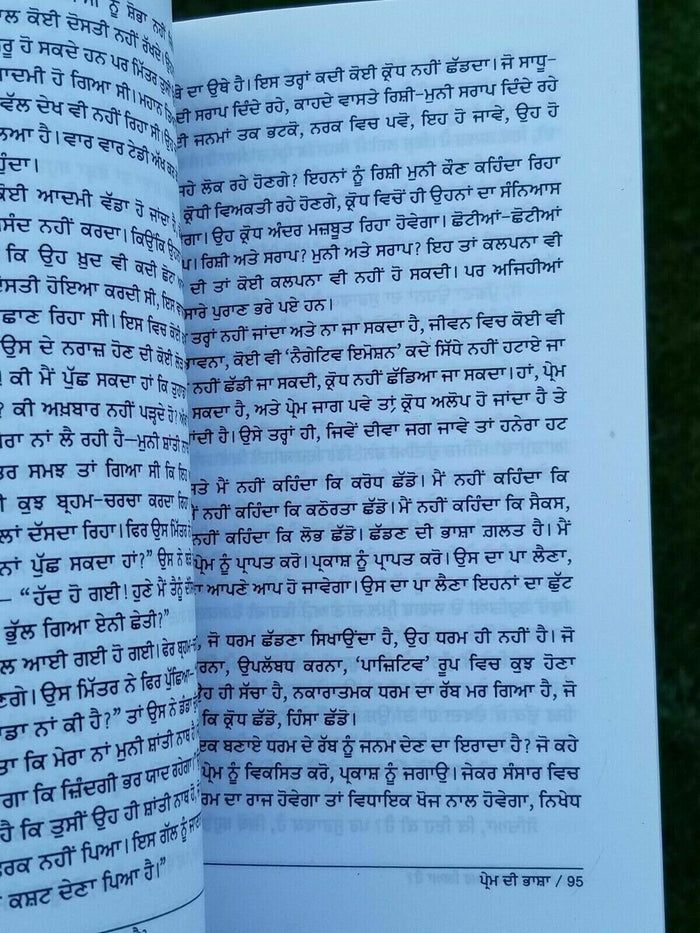 ਨੂੰ ਸ਼ੋਭਾ ਨਹੀਂ
ਕੋਈ ਦੋਸਤੀ ਨਹੀਂ ਰੱਖਦੇ।
ਹੋ ਸਕਦੇ ਹਨ ਪਰ ਮਿੱਤਰ
ਆਦਮੀ ਹੋ ਗਿਆ ਸੀ। ਮਹਾਨ
ਵੱਲ ਦੇਖ ਵੀ ਨਹੀਂ ਰਿਹਾ ਸੀ।
ਹੈ। ਵਾਰ ਵਾਰ ਟੇਡੀ ਅੱਖ
ਹੁੰਦਾ।
ਕੋਈ ਆਦਮੀ ਵੱਡਾ ਹੋ ਜਾਂਦਾ ਹੈ
ਨਹੀਂ ਕਰਦਾ। ਕਿਉਂਕਿ
ਕਿ ਉਹ ਖ਼ੁਦ ਵੀ ਕਦੀ ਛੋਟਾ
ਹੋਇਆ ਕਰਦੀ ਸੀ, ਇਸ
ਰਿਹਾ ਸੀ। ਇਸ ਵਿਚ ਕੋਈ
ਉਸ ਦੇ ਨਰਾਜ਼ ਹੋਣ ਦੀ ਕੋਈ
ਕੀ ਮੈਂ ਪੁੱਛ ਸਕਦਾ ਹਾਂ ਕਿ
? ਕੀ ਅਖ਼ਬਾਰ ਨਹੀਂ ਪੜ੍ਹਦੇ ਹੋ?
ਮੇਰਾ ਨਾਂ ਲੈ ਰਹੀ ਹੈ—ਮੁਨੀ ਸ਼ਾਂਤੀ
ਸਮਝ ਤਾਂ ਗਿਆ ਸੀ ਕਿ
ਕੁਝ ਬ੍ਰਹਮ-ਚਰਚਾ ਕਰਦਾ
ਦੱਸਦਾ ਰਿਹਾ। ਫਿਰ ਉਸ ਮਿੱਤਰ ਨੇ
ਪੁੱਛ ਸਕਦਾ ਹਾਂ?” ਉਸ ਨੇ
– “ਹੱਦ ਹੋ ਗਈ! ਹੁਣੇ ਮੈਂ ਤੈਨੂੰ
ਭੁੱਲ ਗਿਆ ਏਨੀ ਛੇਤੀ?”
ਆਈ ਗਈ ਹੋ ਗਈ। ਫੇਰ ਬ੍ਰਹਮ-
ਉਸ ਮਿੱਤਰ ਨੇ ਫਿਰ ਪੁੱਛਿਆ-
ਨਾਂ ਕੀ ਹੈ?” ਤਾਂ ਉਸ ਨੇ ਡੰਡਾ
ਕਿ ਮੇਰਾ ਨਾਂ ਮੁਨੀ ਸ਼ਾਂਤੀ ਨਾਥ ਹੈ
ਕਿ ਜ਼ਿੰਦਗੀ ਭਰ ਯਾਦ ਰਹੇਗਾ।
ਹੈ ਕਿ ਤੁਸੀਂ ਉਹ ਹੀ ਸ਼ਾਂਤੀ ਨਾਥ ਹੋ,
ਨਹੀਂ ਪਿਆ। ਇਸ ਗੱਲ ਨੂੰ
ਕਸ਼ਟ ਦੇਣਾ ਪਿਆ ਹੈ।”
ਦਾ ਉਥੇ ਹੈ। ਇਸ ਤਰ੍ਹਾਂ ਕਦੀ ਕੋਈ ਕ੍ਰੋਧ ਨਹੀਂ ਛੱਡਦਾ। ਜੋ ਸਾਧੂ-
ਦੀ ਸਰਾਪ ਦਿੰਦੇ ਰਹੇ, ਕਾਹਦੇ ਵਾਸਤੇ ਰਿਸ਼ੀ-ਮੁਨੀ ਸਰਾਪ ਦਿੰਦੇ ਰਹੇ
ਜਨਮਾਂ ਤਕ ਭਟਕੋ, ਨਰਕ ਵਿਚ ਪਵੋ, ਇਹ ਹੋ ਜਾਵੇ, ਉਹ ਹੋ
ਲੋਕ ਰਹੇ ਹੋਣਗੇ? ਇਹਨਾਂ ਨੂੰ ਰਿਸ਼ੀ ਮੁਨੀ ਕੌਣ ਕਹਿੰਦਾ ਰਿਹਾ
ਕ੍ਰੋਧੀ ਵਿਅਕਤੀ ਰਹੇ ਹੋਣਗੇ, ਕ੍ਰੋਧ ਵਿਚੋਂ ਹੀ ਉਹਨਾਂ ਦਾ ਸੰਨਿਆਸ
ਉਹ ਕ੍ਰੋਧ ਅੰਦਰ ਮਜ਼ਬੂਤ ਰਿਹਾ ਹੋਵੇਗਾ। ਛੋਟੀਆਂ-ਛੋਟੀਆਂ
ਰਿਸ਼ੀ ਅਤੇ ਸਰਾਪ? ਮੁਨੀ ਅਤੇ ਸਰਾਪ? ਇਹ ਤਾਂ ਕਲਪਨਾ ਵੀ
ਦੀ ਤਾਂ ਕੋਈ ਕਲਪਨਾ ਵੀ ਨਹੀਂ ਹੋ ਸਕਦੀ। ਪਰ ਅਜਿਹੀਆਂ
ਸਾਰੇ ਪੁਰਾਣ ਭਰੇ ਪਏ ਹਨ।
ਤਰ੍ਹਾਂ ਨਹੀਂ ਜਾਂਦਾ ਅਤੇ ਨਾ ਜਾ ਸਕਦਾ ਹੈ, ਜੀਵਨ ਵਿਚ ਕੋਈ ਵੀ
ਕੋਈ ਵੀ ‘ਨੈਗੇਟਿਵ ਇਮੋਸ਼ਨ’ ਕਦੇ ਸਿੱਧੇ ਨਹੀਂ ਹਟਾਏ ਜਾ
ਨਹੀਂ ਛੱਡੀ ਜਾ ਸਕਦੀ, ਕ੍ਰੋਧ ਨਹੀਂ ਛੱਡਿਆ ਜਾ ਸਕਦਾ। ਹਾਂ, ਪ੍ਰੇਮ
ਸਕਦਾ ਹੈ, ਅਤੇ ਪ੍ਰੇਮ ਜਾਗ ਪਵੇ ਤਾਂ ਕ੍ਰੋਧ ਅਲੋਪ ਹੋ ਜਾਂਦਾ ਹੈ ਤੇ
ਹੈ। ਉਸੇ ਤਰ੍ਹਾਂ ਹੀ, ਜਿਵੇਂ ਦੀਵਾ ਜਗ ਜਾਵੇ ਤਾਂ ਹਨੇਰਾ ਹਟ
ਮੈਂ ਨਹੀਂ ਕਹਿੰਦਾ ਕਿ ਕਰੋਧ ਛੱਡੋ। ਮੈਂ ਨਹੀਂ ਕਹਿੰਦਾ ਕਿ
ਨਹੀਂ ਕਹਿੰਦਾ ਕਿ ਕਠੋਰਤਾ ਛੱਡੋ। ਮੈਂ ਨਹੀਂ ਕਹਿੰਦਾ ਕਿ ਸੈਕਸ,
ਨਹੀਂ ਕਹਿੰਦਾ ਕਿ ਲੋਭ ਛੱਡੋ। ਛੱਡਣ ਦੀ ਭਾਸ਼ਾ ਗ਼ਲਤ ਹੈ। ਮੈਂ
ਪ੍ਰੇਮ ਨੂੰ ਪ੍ਰਾਪਤ ਕਰੋ। ਪ੍ਰਕਾਸ਼ ਨੂੰ ਪ੍ਰਾਪਤ ਕਰੋ। ਉਸ ਦਾ ਪਾ ਲੈਣਾ,
ਆਪਣੇ ਆਪ ਹੋ ਜਾਵੇਗਾ। ਉਸ ਦਾ ਪਾ ਲੈਣਾ ਇਹਨਾਂ ਦਾ ਛੁੱਟ
ਜੋ ਧਰਮ ਛੱਡਣਾ ਸਿਖਾਉਂਦਾ ਹੈ, ਉਹ ਧਰਮ ਹੀ ਨਹੀਂ ਹੈ। ਜੋ
ਉਪਲੱਬਧ ਕਰਨਾ, ‘ਪਾਜ਼ਿਟਿਵ’ ਰੂਪ ਵਿਚ ਕੁਝ ਹੋਣਾ
ਹੀ ਸੱਚਾ ਹੈ, ਨਕਾਰਾਤਮਕ ਧਰਮ ਦਾ ਰੱਬ ਮਰ ਗਿਆ ਹੈ, ਜੋ
ਕਿ ਕ੍ਰੋਧ ਛੱਡੋ, ਹਿੰਸਾ ਛੱਡੋ।
ਬਣਾਏ ਧਰਮ ਦੇ ਰੱਬ ਨੂੰ ਜਨਮ ਦੇਣ ਦਾ ਇਰਾਦਾ ਹੈ? ਜੋ ਕਹੇ
ਪ੍ਰੇਮ ਨੂੰ ਵਿਕਸਿਤ ਕਰੋ, ਪ੍ਰਕਾਸ਼ ਨੂੰ ਜਗਾਉ। ਜੇਕਰ ਸੰਸਾਰ ਵਿਚ
ਦਾ ਰਾਜ ਹੋਵੇਗਾ ਤਾਂ ਵਿਧਾਇਕ ਖੋਜ ਨਾਲ ਹੋਵੇਗਾ, ਨਿਖੇਧ
ਪ੍ਰੇਮ ਦੀ ਭਾਸ਼ਾ / 95